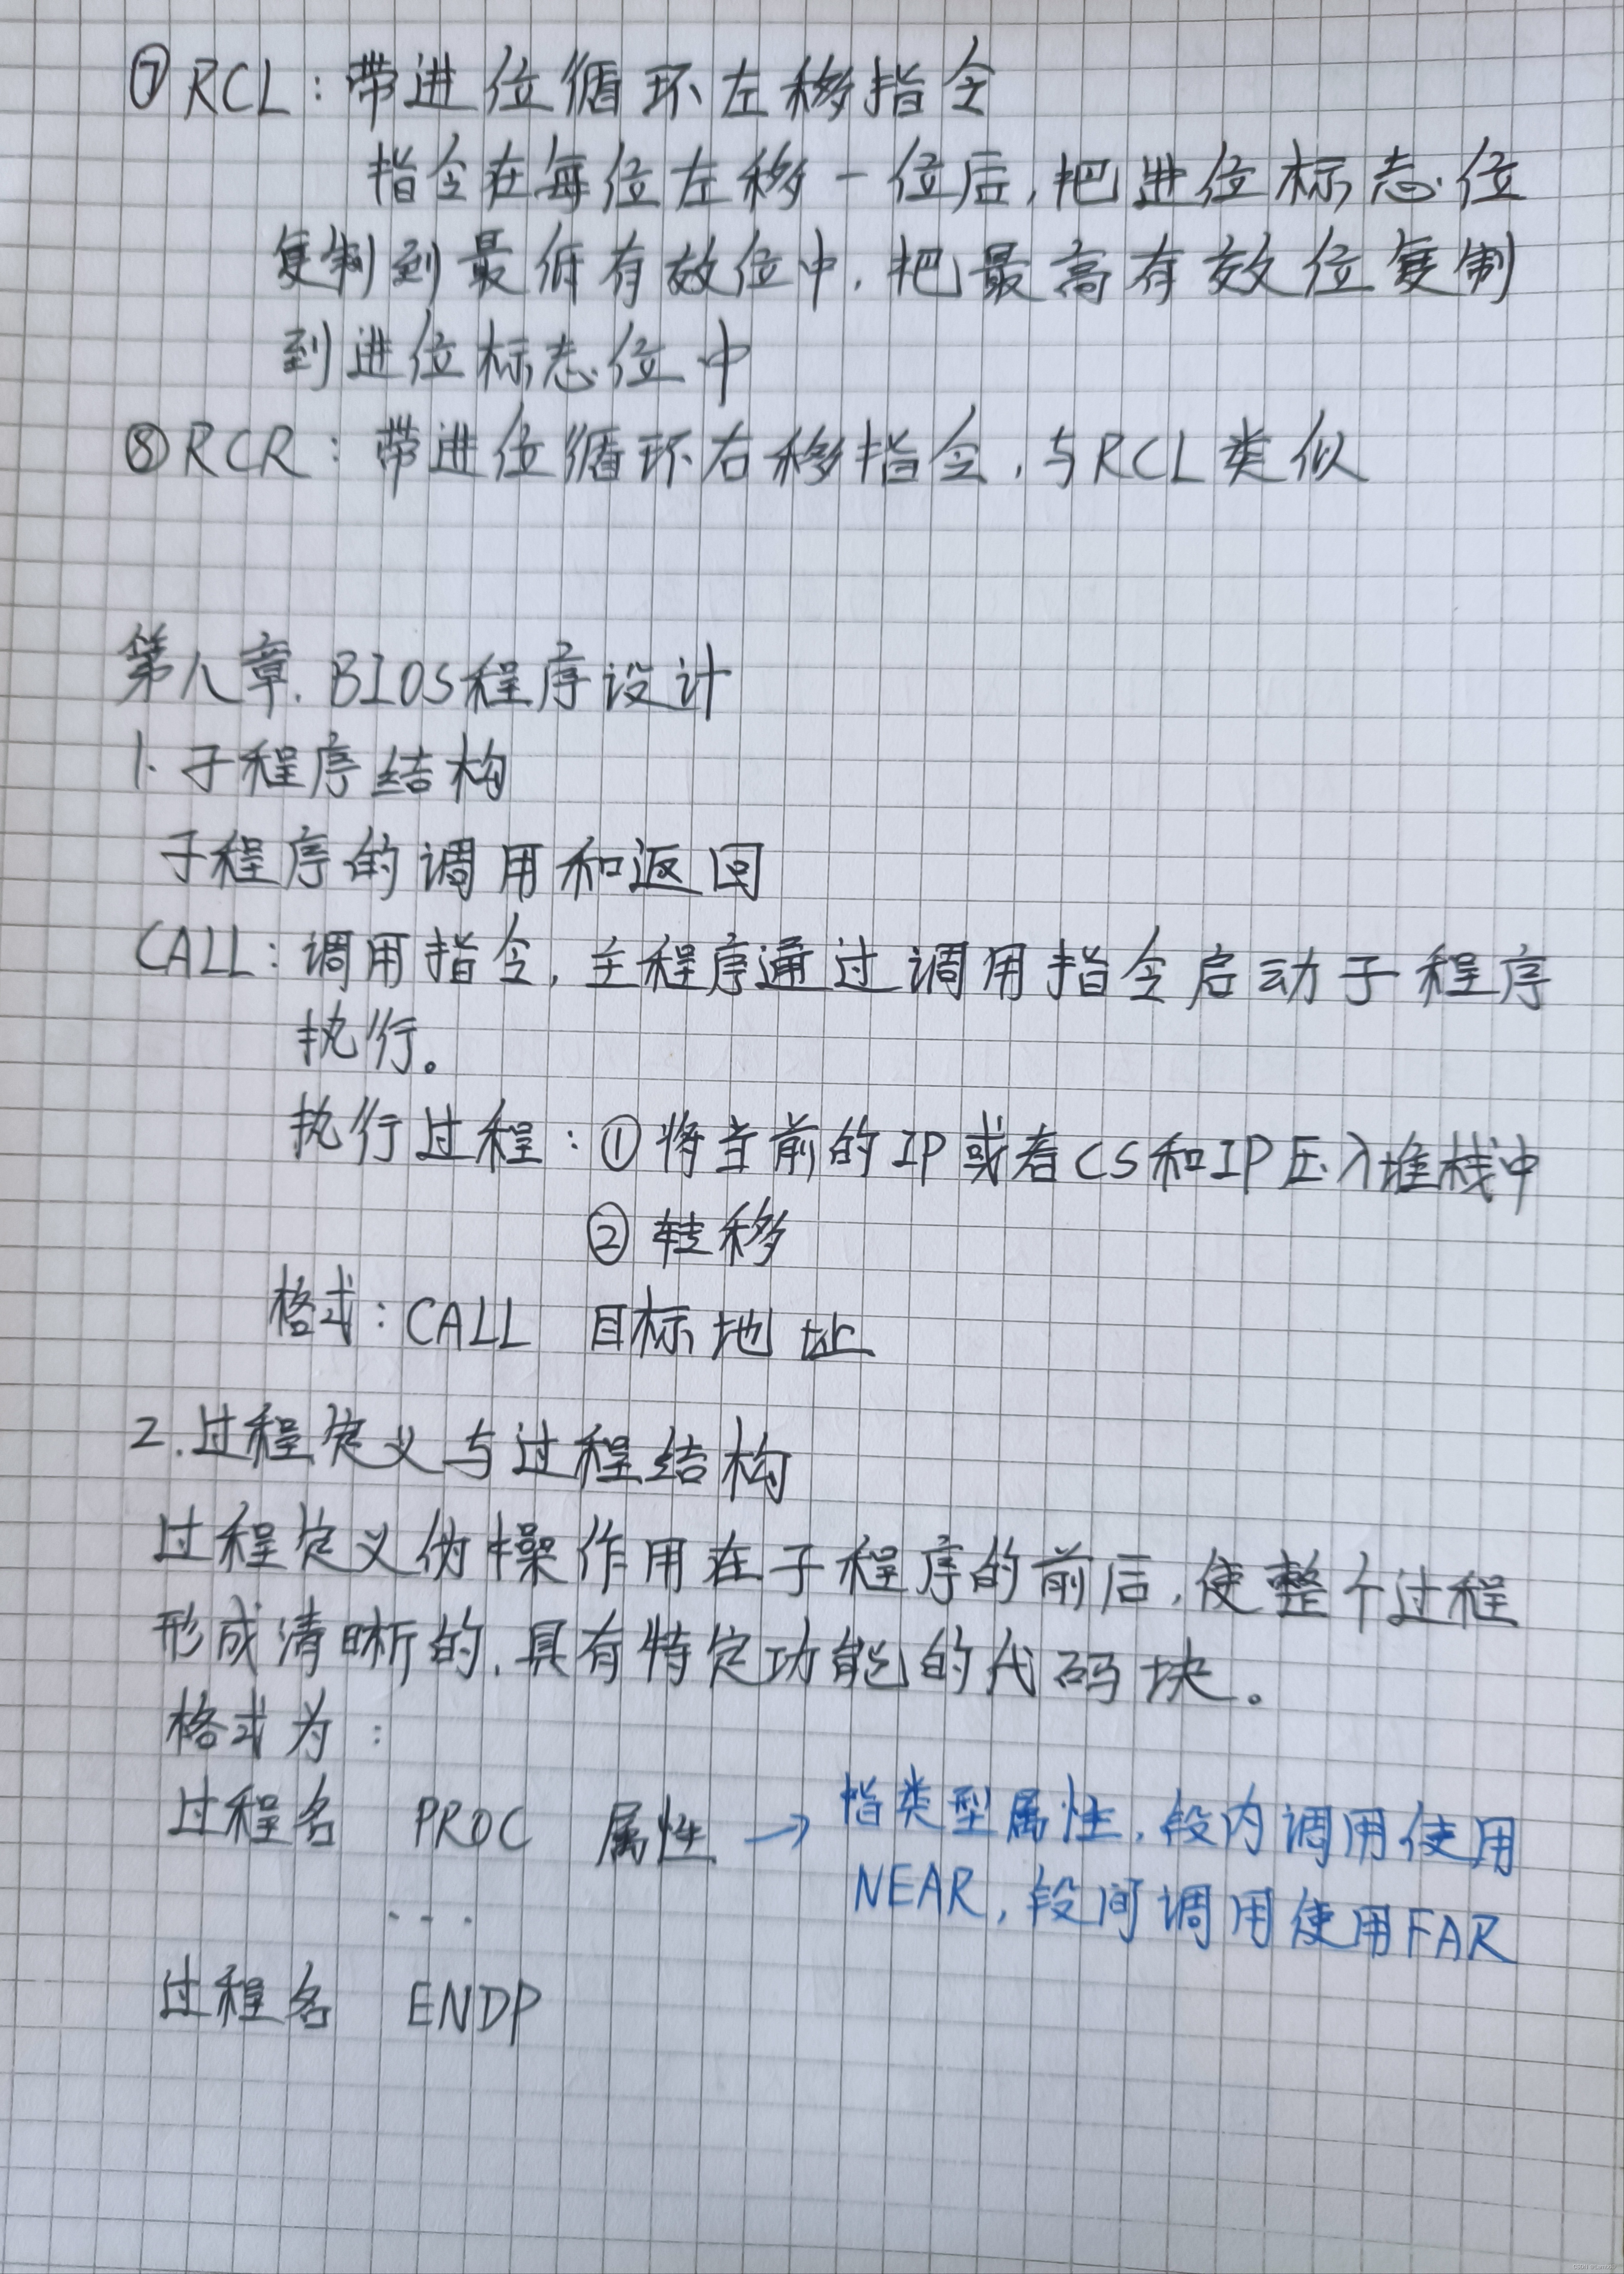 ⑦RCL:带进位循环左移指令
指令在每位左移一位后,把进位标志位
复制到最低有效位中,把最高有效位复制
到进位标志位中
⑧RCR:带进位循环右移指令,与RCL类似
第八章.BIOS程序设计
1.子程序结构
子程序的调用和返回
CALL:调用指令,主程序通过调用指令启动子程序
执行。
执行过程:①将当前的IP或者CS和IP压入堆栈中
②转移
格式:CALL 目标地址
2.过程定义与过程结构
过程定义伪操作用在子程序的前后,使整个过程
形成清晰的,具有特定功能的代码块。
格式为:
过程名 PROC 属性→指类型属性,段内调用使用
NEAR,段间调用使用FAR
...
过程名 ENDP